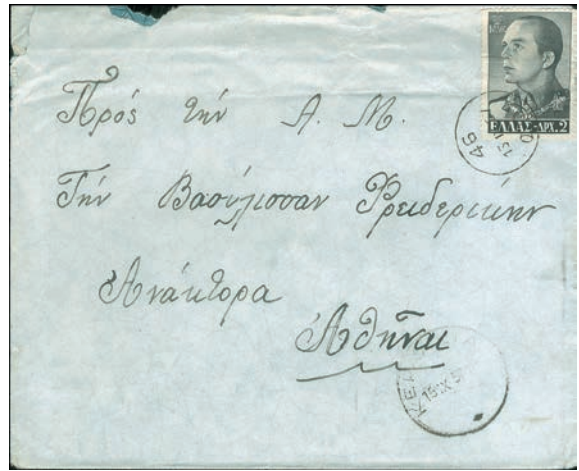 ΕΛΛΑΣ-ΔΡΧ. 2
46
Πρὸς τὴν Α. Μ.
Τὴν Βασύλισσαν Φρειδερίκην
Ἀνάκτορα
Ἀθῆναι